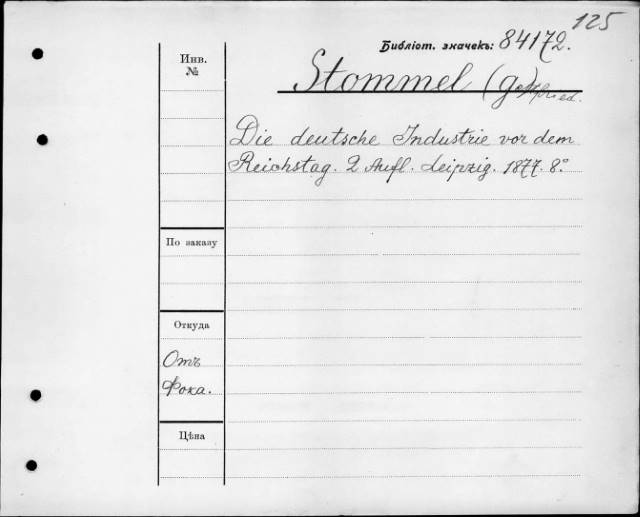 125
Библіот. значекъ: 84172.
Инв.
№
Stommel (Gottfried.
Die deutsche Industrie vor dem
Reichstag. 2 Aufl. Leipzig. 1877. 8°
По заказу
Откуда
Отъ
Фока.
Цѣна